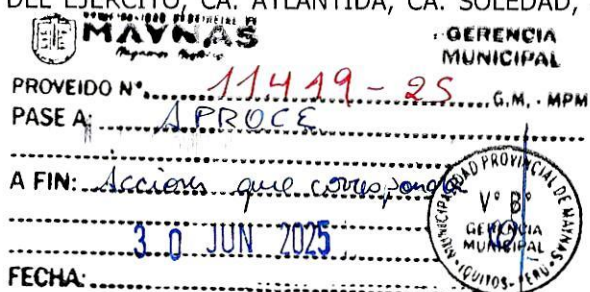 DEL EJÉRCITO, CA. ATLANTIDA, CA. SOLEDAD,
MAYNAS
GERENCIA
MUNICIPAL
PROVEIDO N°. 11419-25 G.M. - MPM
PASE A: APROCE
A FIN: Acciones que corresponda
30 JUN 2025
FECHA:
MUNICIPALIDAD PROVINCIAL DE MAYNAS
V° B°
GERENCIA
MUNICIPAL
IQUITOS - PERU